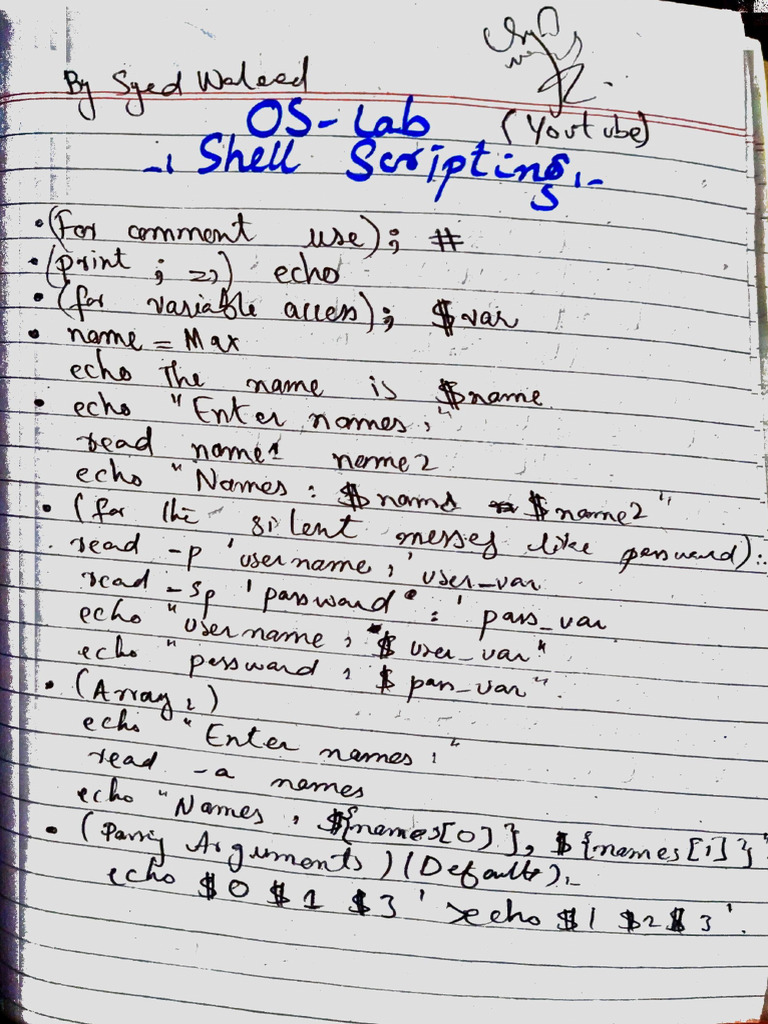 By Syed Waleed
(Youtube)
OS-Lab
Shell Scripting
• (For comment use); #
• (print ; =>) echo
• (for variable access); $var
• name = Max
echo The name is $name
• echo "Enter names :"
read name1 name2
echo "Names : $name1 $name2"
• (for the silent messeg like password):
read -p 'username : ' user_var
read -sp 'password : ' pass_var
echo "username : $ user_var"
echo "password : $ pass_var".
• (Array :)
echo "Enter names :"
read -a names
echo "Names : ${names[0]}, ${names[1]}"
• (Passing Arguments) (Default) :-
echo $0 $1 $3 ' > echo $1 $2 $3 '.